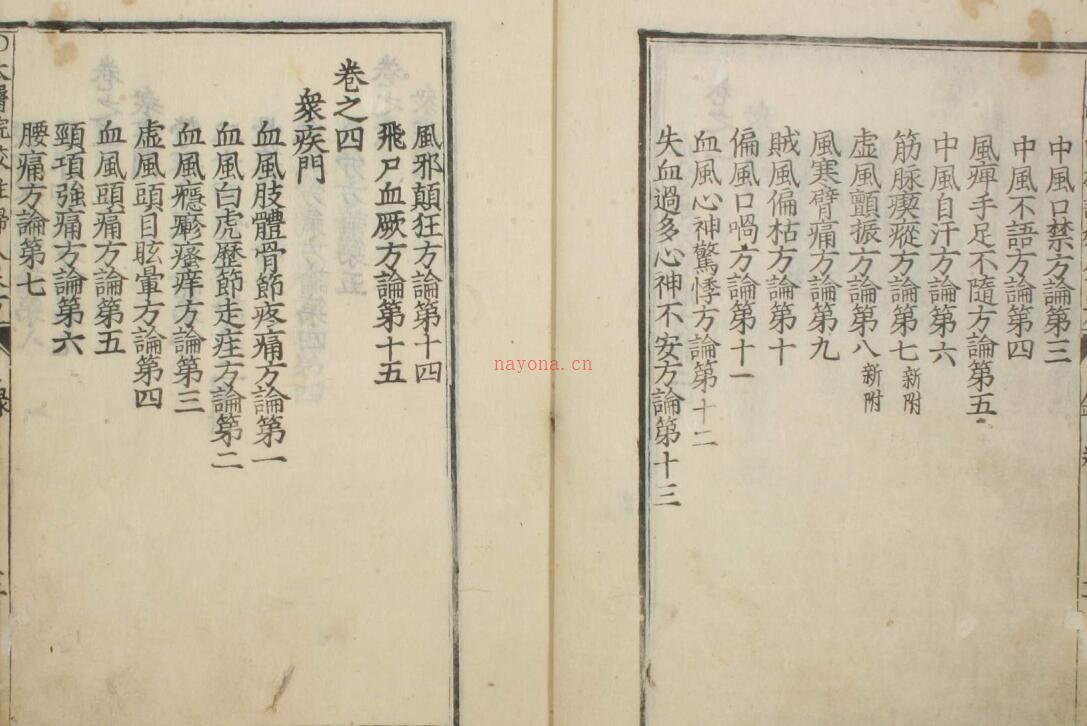 中風口禁方論第三
中風不語方論第四
風痺手足不隨方論第五
中風自汗方論第六
筋脉瘈瘲方論第七 新附
虛風顫振方論第八 新附
風寒臂痛方論第九
賊風偏枯方論第十
偏風口喎方論第十一
血風心神驚悸方論第十二
失血過多心神不安方論第十三
風邪顛狂方論第十四
飛尸血厥方論第十五
卷之四
衆疾門
血風肢體骨節疼痛方論第一
血風白虎歷節走疰方論第二
血風癮疹瘙痒方論第三
虛風頭目眩暈方論第四
血風頭痛方論第五
頸項強痛方論第六
腰痛方論第七
nayona.cn